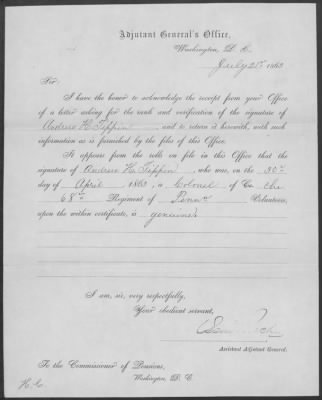 Adjutant General's Office,
Washington, D. C.
July 21st 1863
Sir:
I have the honor to acknowledge the receipt from your Office
of a letter asking for the rank and verification of the signature of
Andrew H. Tippin, and to return it herewith, with such
information as is furnished by the files of this Office.
It appears from the rolls on file in this Office that the
signature of Andrew H. Tippin, who was, on the 30th
day of April 1863, a Colonel of Co. the
68th Regiment of Penna Volunteers,
upon the within certificate, is genuine.
I am, sir, very respectfully,
Your obedient servant,
Assistant Adjutant General.
To the Commissioner of Pensions,
Washington, D. C.